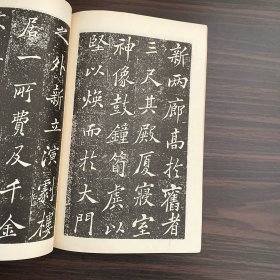 新两廊高於舊者
三尺其殿厦寢室
神像鼓鐘筍虡以
堅以煥而於大門
之外新立演劇樓
居一所費及千金